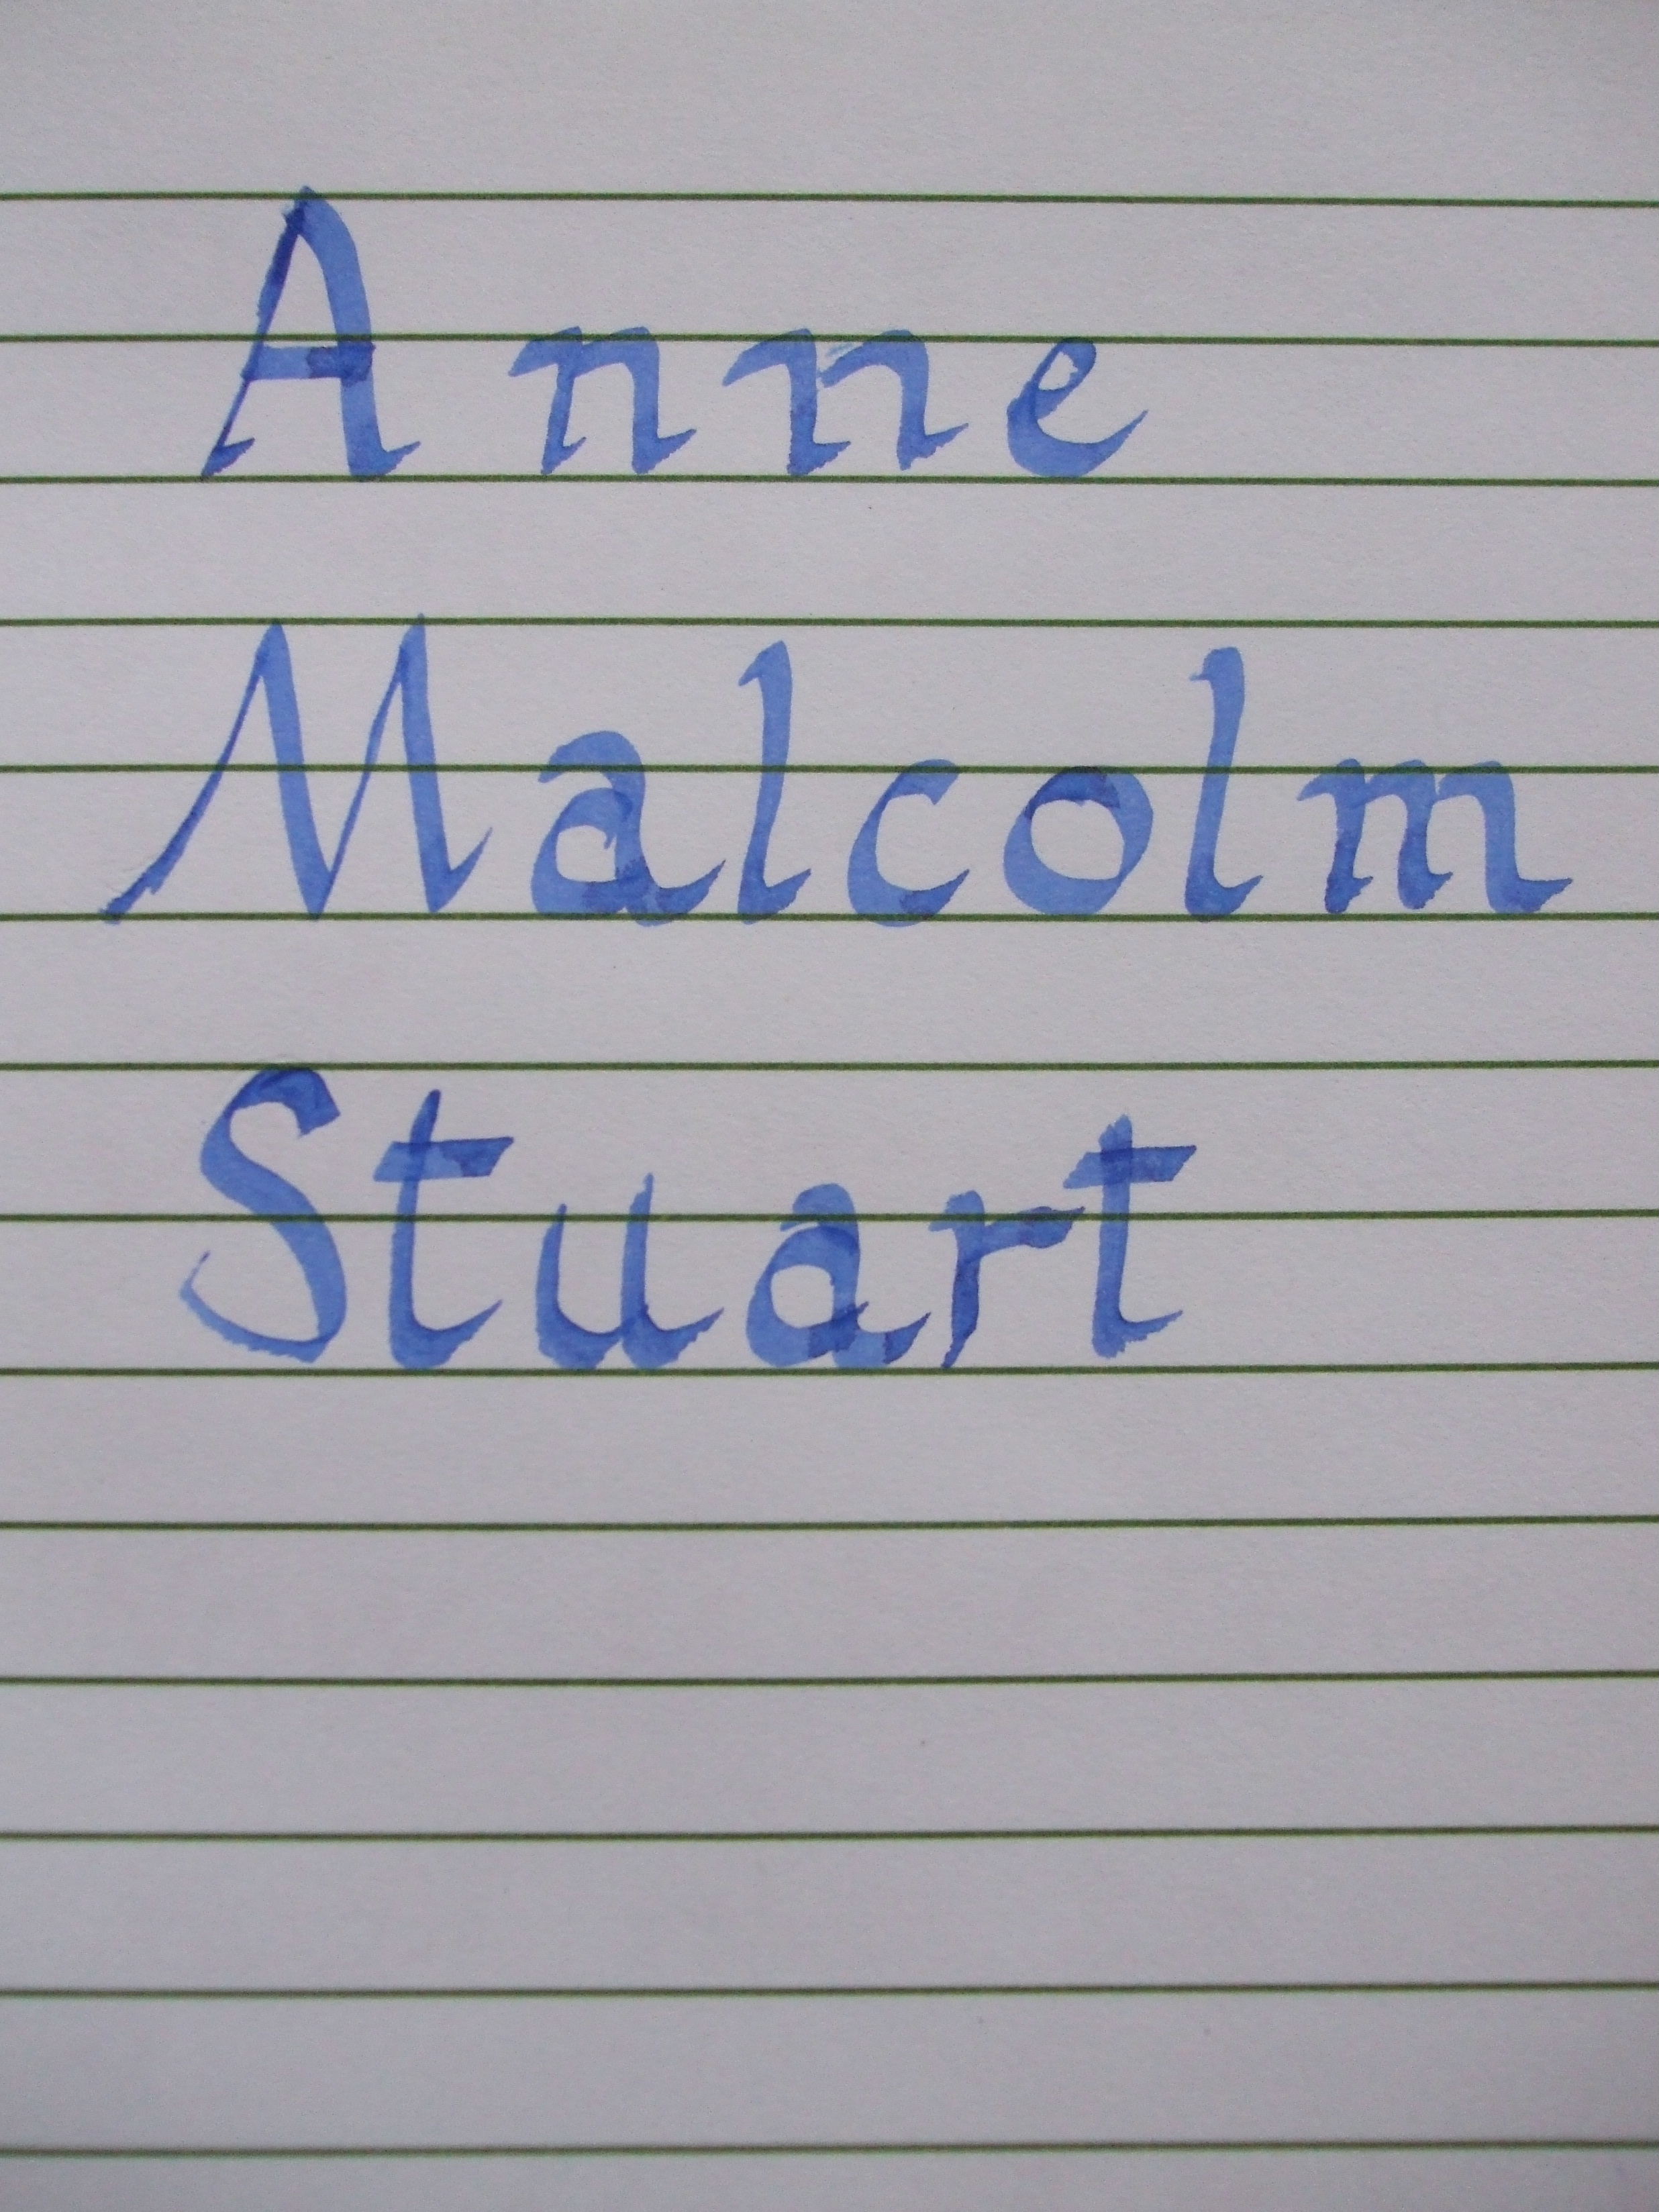 Anne
Malcolm
Stuart